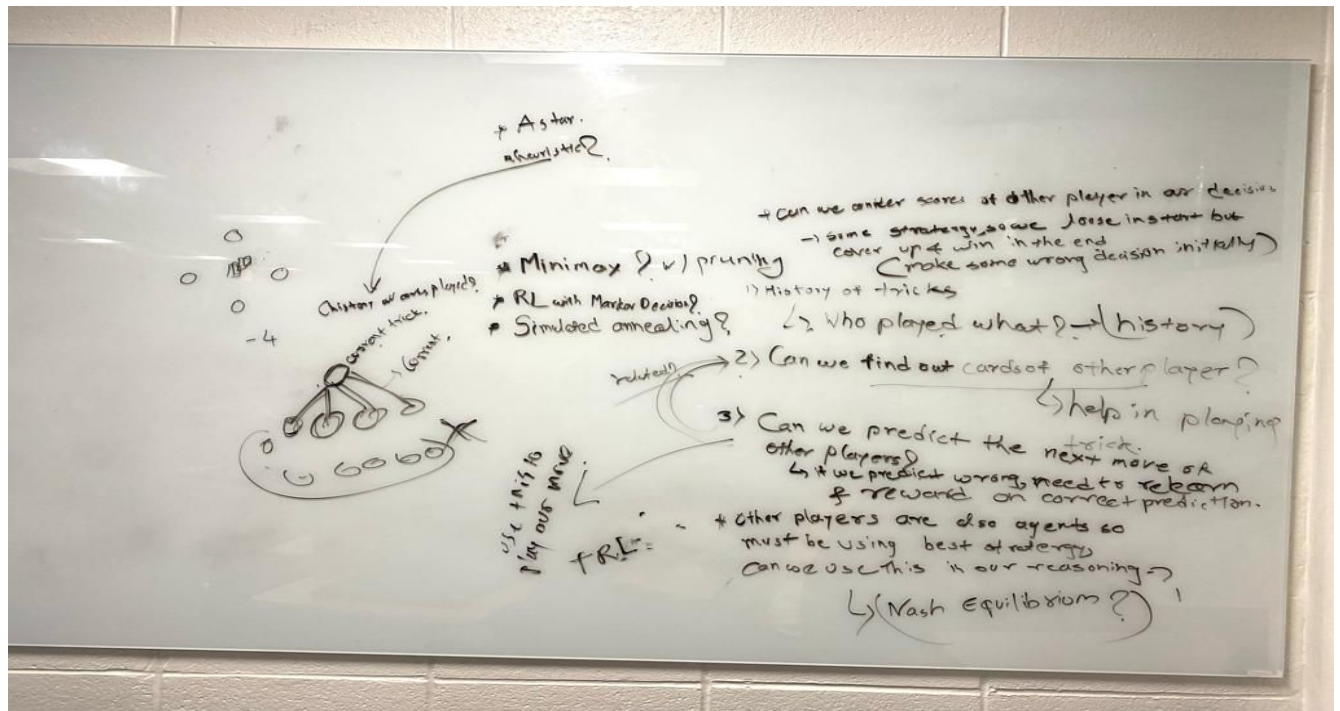 * A star.
heuristic?
(history of cards played?
current trick.
- 4
* Minimax ? w/ pruning
* RL with Markov Decision?
* Simulated annealing?
* can we consider scores of other player in our decision
→ some stratergy, so we loose in start but
cover up & win in the end
(make some wrong decision initially)
1) History of tricks
↳ Who played what? → (history)
related?
2) Can we find out cards of other player?
↳ help in playing
trick.
3) Can we predict the next move of
other players?
↳ if we predict wrong, need to relearn
& reward on correct prediction.
use this to
play our move.
+ RL
* Other players are also agents so
must be using best stratergy
can we use this in our reasoning →
↳ (Nash Equilibrium?)